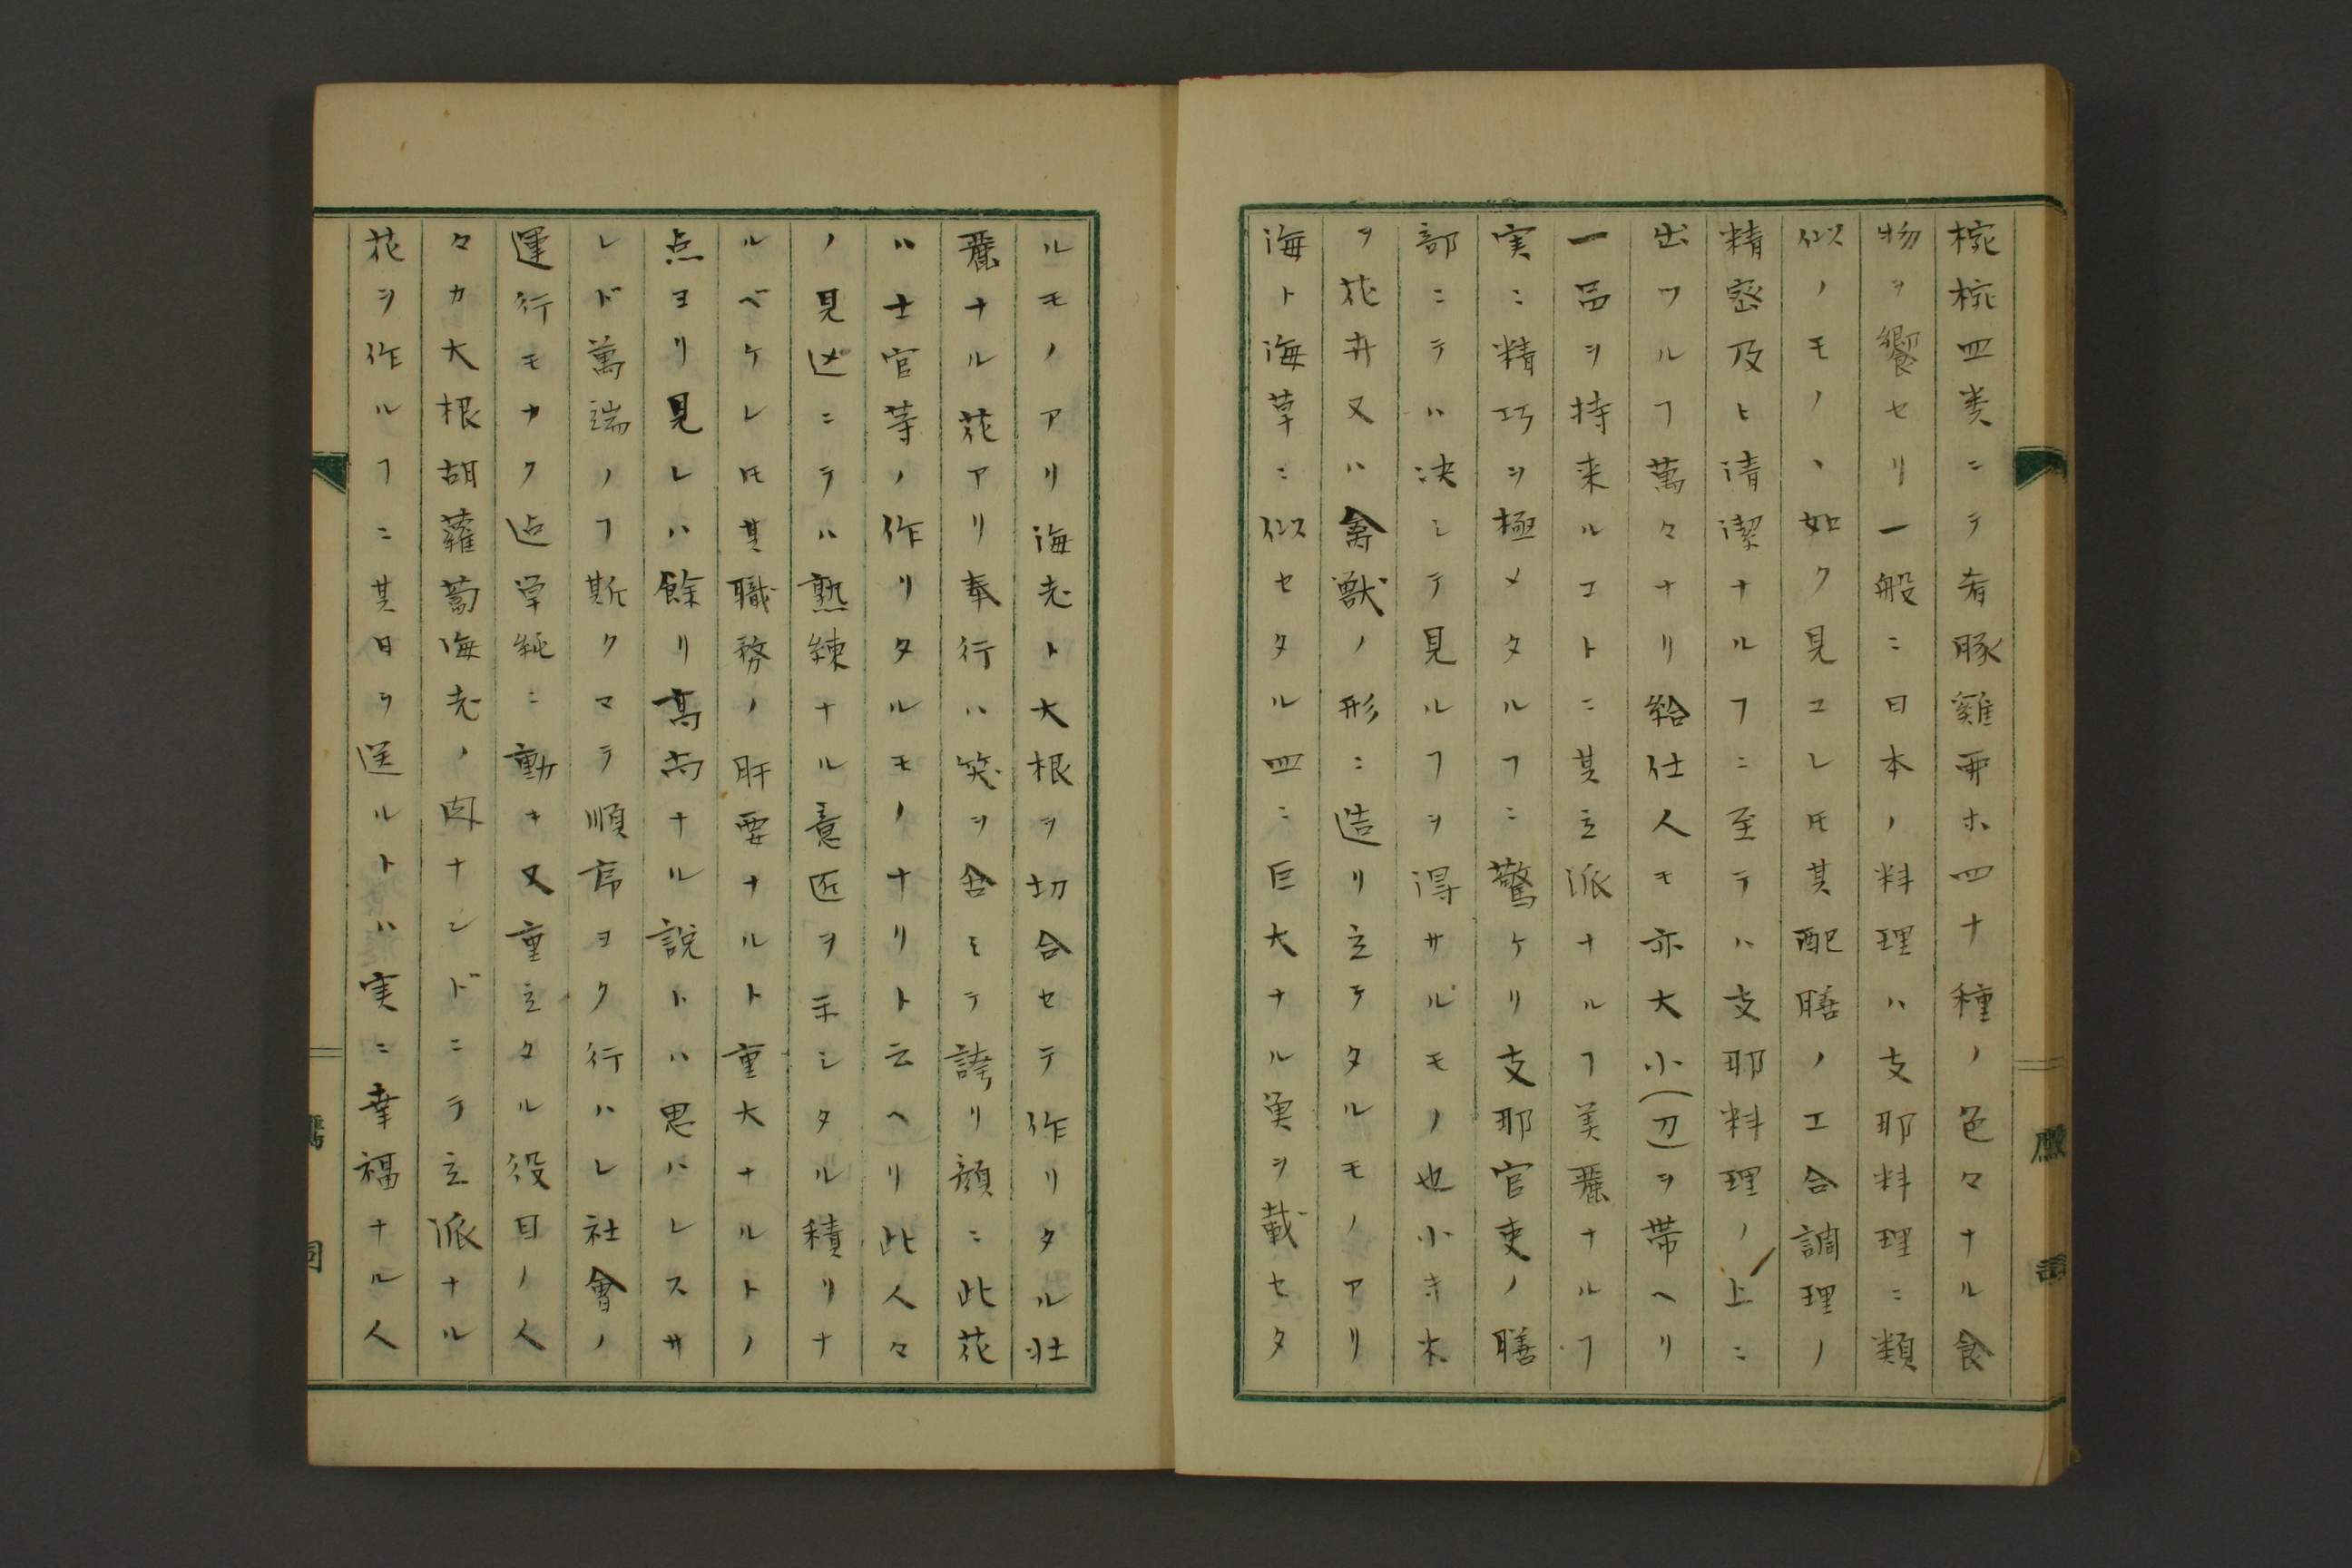 椀椀皿类ニテ肴豚雞亜ホ四十種ノ色々ナル食
物ヲ饗セリ一般ニ日本ノ料理ハ支耶料理ニ類
似ノモノヽ如ク見ユレ𪜈其配膳ノ工合調理ノ
精密及ヒ清潔ナルヿニ至テハ支耶料理ノ上ニ
出ツルヿ萬々ナリ給仕人モ亦大小(刀)ヲ帯ヘリ
一品ヲ持来ルコトニ其立派ナルヿ美麗ナルヿ
実ニ精巧ヲ極メタルヿニ驚ケリ支耶官吏ノ膳
部ニテハ决シテ見ルヿヲ得サルモノ也小キ木
ヲ花卉又ハ禽獣ノ形ニ造リ立テタルモノアリ
海ト海草ニ似セタル皿ニ巨大ナル魚ヲ載セタ
ルモノアリ海老ト大根ヲ切合セテ作リタル壮
麗ナル花アリ奉行ハ笑ヲ含ミテ誇リ顔ニ此花
ハ士官等ノ作リタルモノナリト云ヘリ此人々
ノ見込ニテハ熟練ナル意匠ヲ示シタル積リナ
ルベケレ𪜈其職務ノ肝要ナルト重大ナルトノ
点ヨリ見レハ餘リ高尚ナル説トハ思ハレスサ
レド萬端ノヿ斯クマテ順序ヨク行ハレ社會ノ
運行モナク迠単純ニ動キ又重立タル役目ノ人
々カ大根胡蘿蔔海老ノ肉ナンドニテ立派ナル
花ヲ作ルヿニ其日ヲ送ルトハ実ニ幸福ナル人